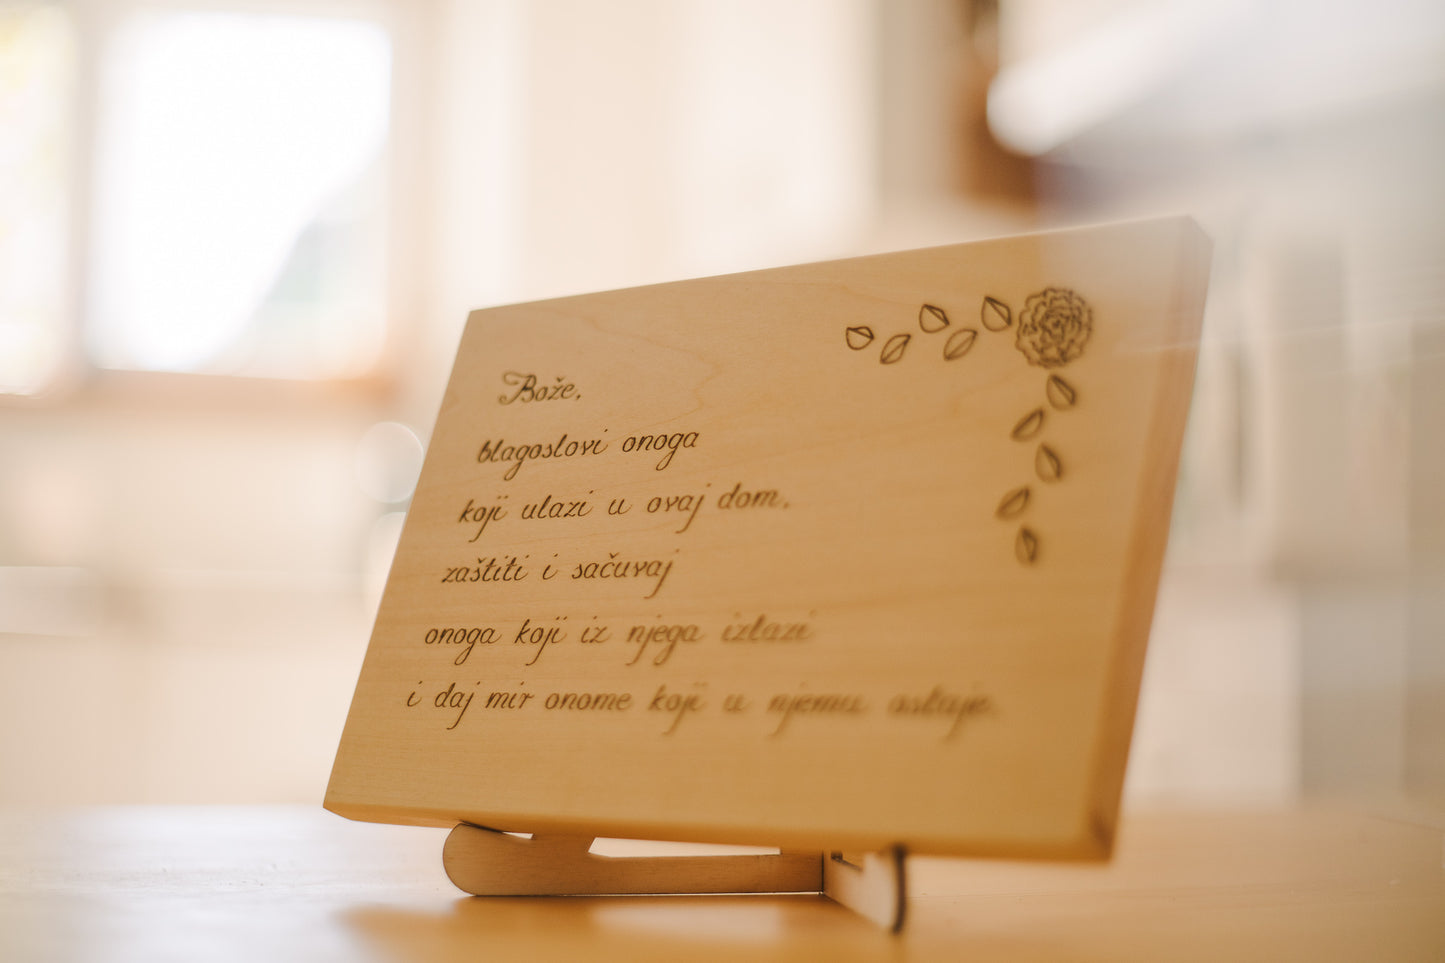 Bože,
blagoslovi onoga
koji ulazi u ovaj dom,
zaštiti i sačuvaj
onoga koji iz njega izlazi
i daj mir onome koji u njemu ostaje.